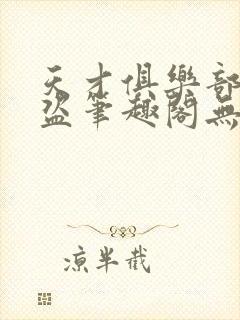 天才俱樂部
盜筆趣閣無
涼半截